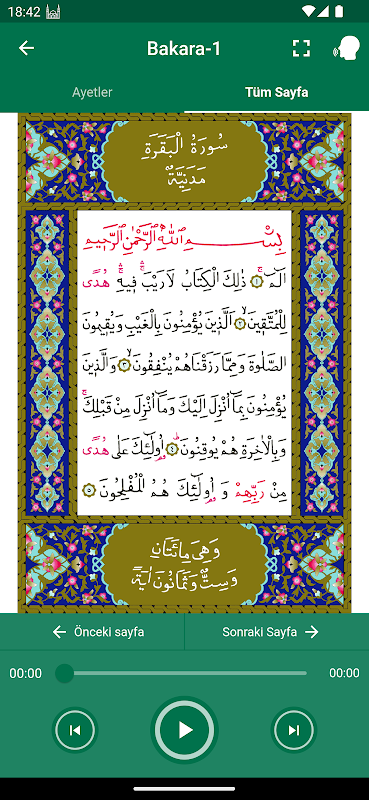 18:42
Bakara-1
Ayetler
Tüm Sayfa
سُورَةُ الْبَقَرَةِ
مَدَنِيَّةٌ
بِسْمِ اللهِ الرَّحْمٰنِ الرَّحِيمِ
الٓمٓ ۚ ﴿١﴾ ذٰلِكَ الْكِتَابُ لَا رَيْبَ ۛ فِيهِ ۛ هُدًى
لِلْمُتَّقِينَ ۙ ﴿٢﴾ اَلَّذِينَ يُؤْمِنُونَ بِالْغَيْبِ وَيُقِيمُونَ
الصَّلٰوةَ وَمِمَّا رَزَقْنَاهُمْ يُنْفِقُونَ ۙ ﴿٣﴾ وَالَّذِينَ
يُؤْمِنُونَ بِمَٓا اُنْزِلَ اِلَيْكَ وَمَٓا اُنْزِلَ مِنْ قَبْلِكَ ۚ
وَبِالْاٰخِرَةِ هُمْ يُوقِنُونَ ۜ ﴿٤﴾ اُو۬لٰٓئِكَ عَلٰى هُدًى
مِنْ رَبِّهِمْ وَ اُو۬لٰٓئِكَ هُمُ الْمُفْلِحُونَ ﴿٥﴾
وَهِيَ مِائَتَانِ
وَسِتٌّ وَثَمَانُونَ اٰيَةً
← Önceki sayfa
Sonraki Sayfa →
00:00
00:00